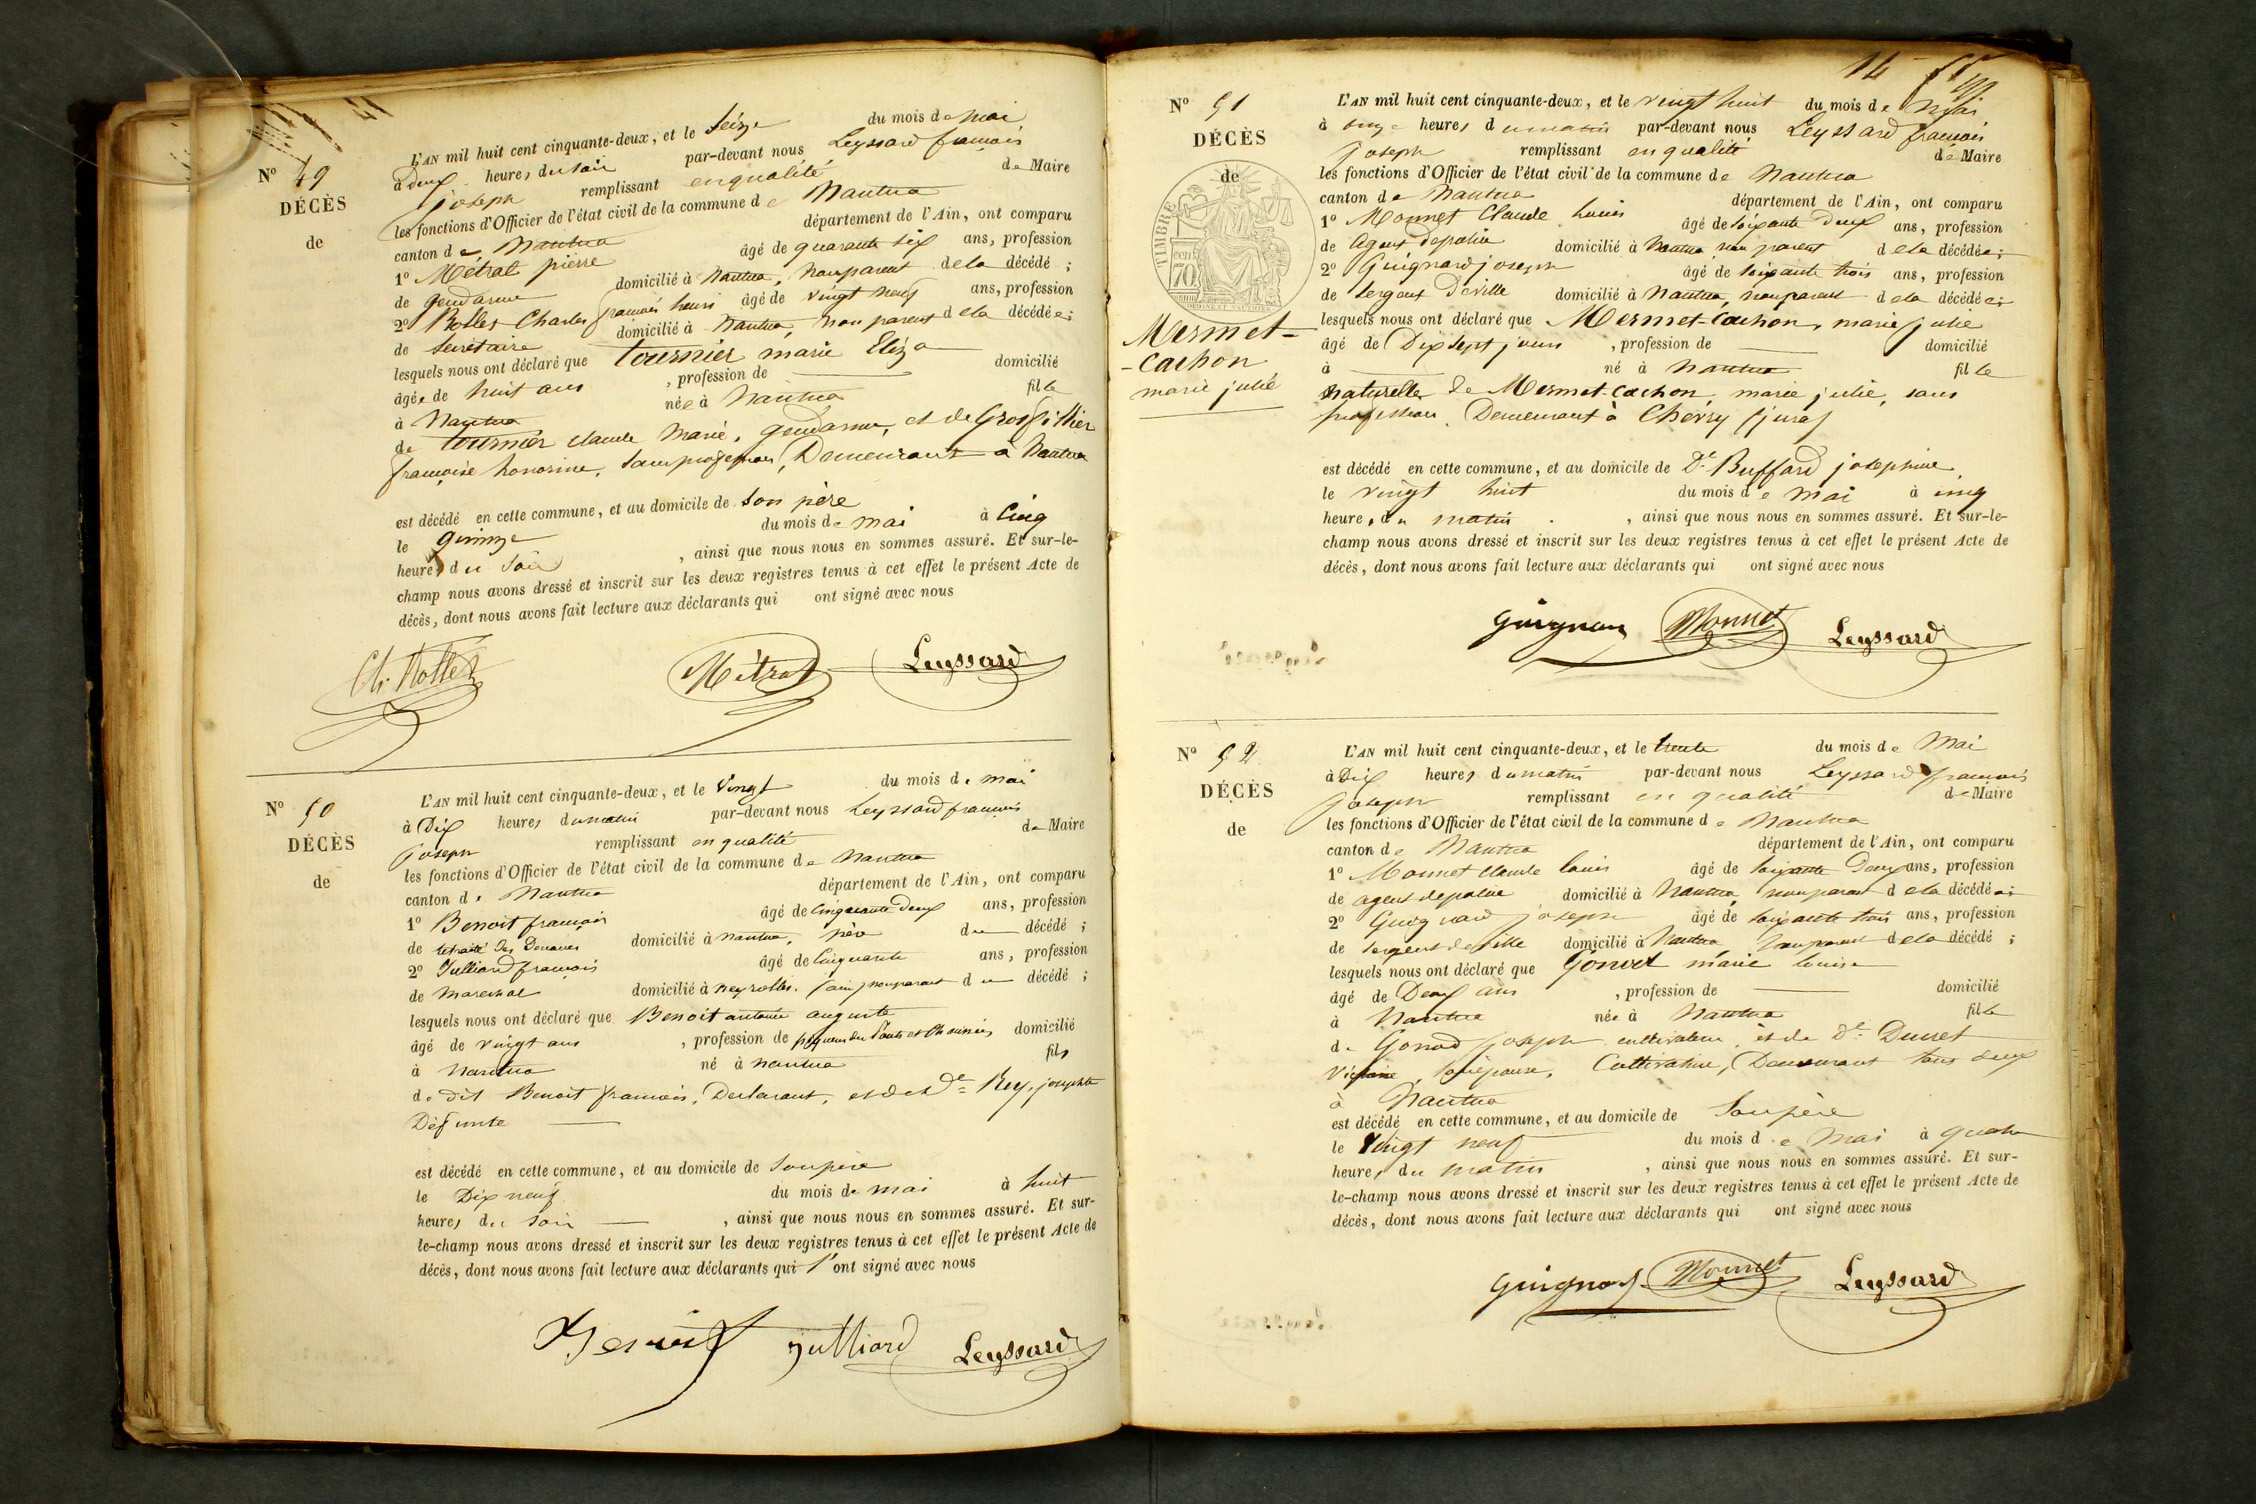 N° 49
DÉCÈS
de
L'AN mil huit cent cinquante-deux, et le Seize du mois de Mai
à deux heures du soir par-devant nous Leyssard françois
joseph remplissant en qualité de Maire
les fonctions d'Officier de l'état civil de la commune de Nantua
canton de Nantua département de l'Ain, ont comparu
1° Métral pierre âgé de quarante six ans, profession
de gendarme domicilié à Nantua, non parent de la décédé ;
2° Rollet Charles françois henri âgé de vingt neuf ans, profession
de Secrétaire domicilié à Nantua, non parent de la décédée ;
lesquels nous ont déclaré que tournier marie Eliza
âgée de huit ans , profession de domicilié
à Nantua née à Nantua fille
de tournier claude Marie, gendarme, et de Grosfillier
françoise honorine, sans profession, Demeurant à Nantua
est décédé en cette commune, et au domicile de son père
le quinze du mois de mai à Cinq
heures du soir , ainsi que nous nous en sommes assuré. Et sur-le-
champ nous avons dressé et inscrit sur les deux registres tenus à cet effet le présent Acte de
décès, dont nous avons fait lecture aux déclarants qui ont signé avec nous
Ch. Rollet Métral Leyssard
N° 50
DÉCÈS
de
L'AN mil huit cent cinquante-deux, et le vingt du mois de mai
à Dix heures du matin par-devant nous Leyssard françois
joseph remplissant en qualité de Maire
les fonctions d'Officier de l'état civil de la commune de Nantua
canton de Nantua département de l'Ain, ont comparu
1° Benoit françois âgé de Cinquante deux ans, profession
de retraité des Douanes domicilié à nantua, père du décédé ;
2° Julliard françois âgé de Cinquante ans, profession
de Marechal domicilié à neyrolles, (ain) non parent du décédé ;
lesquels nous ont déclaré que Benoit antoine auguste
âgé de vingt ans , profession de piqueur des Ponts et Chaussées domicilié
à Nantua né à nantua fils
de dit Benoit françois, Déclarant, et de De Rey, josephte
Défunte
est décédé en cette commune, et au domicile de son père
le Dix neuf du mois de mai à huit
heures du soir , ainsi que nous nous en sommes assuré. Et sur-
le-champ nous avons dressé et inscrit sur les deux registres tenus à cet effet le présent Acte de
décès, dont nous avons fait lecture aux déclarants qui l'ont signé avec nous
Benoit julliard Leyssard
14
N° 51
DÉCÈS
de
TIMBRE
70
Mermet-
-Cachon
marie julie
L'AN mil huit cent cinquante-deux, et le vingt huit du mois de Mai
à onze heures du matin par-devant nous Leyssard françois
joseph remplissant en qualité de Maire
les fonctions d'Officier de l'état civil de la commune de Nantua
canton de Nantua département de l'Ain, ont comparu
1° Monnet Claude louis âgé de soixante deux ans, profession
de agent de police domicilié à Nantua, non parent de la décédée ;
2° Guignard joseph âgé de soixante trois ans, profession
de sergent de ville domicilié à Nantua, non parent de la décédée ;
lesquels nous ont déclaré que Mermet-Cachon, marie julie
âgé de Dix sept jours , profession de domicilié
à né à Nantua fille
naturelle de Mermet-Cachon, marie julie, sans
profession, Demeurant à Chevry (jura)
est décédé en cette commune, et au domicile de De Buffard josephine
le vingt huit du mois de mai à cinq
heures du matin , ainsi que nous nous en sommes assuré. Et sur-le-
champ nous avons dressé et inscrit sur les deux registres tenus à cet effet le présent Acte de
décès, dont nous avons fait lecture aux déclarants qui ont signé avec nous
Guignard Monnet Leyssard
N° 52
DÉCÈS
de
L'AN mil huit cent cinquante-deux, et le trente du mois de Mai
à Dix heures du matin par-devant nous Leyssard françois
joseph remplissant en qualité de Maire
les fonctions d'Officier de l'état civil de la commune de Nantua
canton de Nantua département de l'Ain, ont comparu
1° Monnet Claude louis âgé de soixante Deux ans, profession
de agent de police domicilié à Nantua, non parent de la décédée ;
2° Guignard joseph âgé de soixante trois ans, profession
de sergent de ville domicilié à Nantua, non parent de la décédé ;
lesquels nous ont déclaré que Gonod marie louise
âgé de Deux ans , profession de domicilié
à Nantua née à Nantua fille
de Gonod joseph cultivateur, et de De Dunet
, son épouse, Cultivatrice, Demeurant tous deux
à Nantua
est décédé en cette commune, et au domicile de Son père
le Vingt neuf du mois de Mai à quatre
heures du matin , ainsi que nous nous en sommes assuré. Et sur-
le-champ nous avons dressé et inscrit sur les deux registres tenus à cet effet le présent Acte de
décès, dont nous avons fait lecture aux déclarants qui ont signé avec nous
Guignard Monnet Leyssard